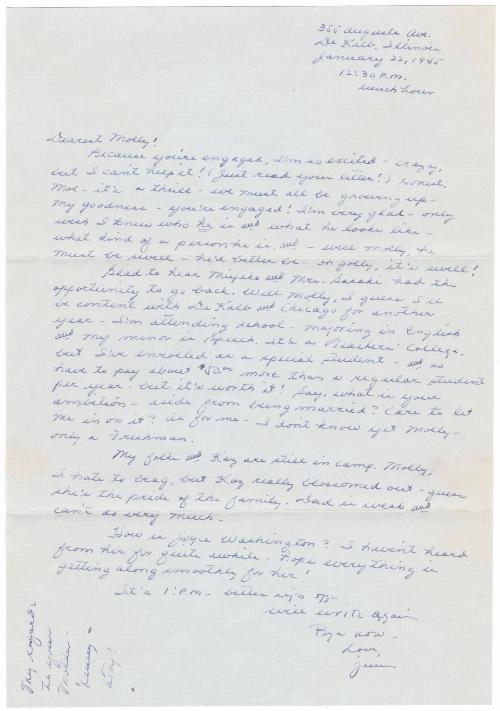 355 Augusta Ave.
De Kalb, Illinois
January 22, 1945
12:30 P.M.
lunch hour
Dearest Molly!
Because you're engaged, I'm so excited - crazy,
but I can't help it! (Just read your letter!) Honest,
Mol - it's a thrill - we must all be growing up -
my goodness - you're engaged! I'm very glad - only
wish I knew who he is and what he looks like -
what kind of a person he is, and - well Molly, he
must be swell - he'd better be - oh golly, it's swell!
Glad to hear Miyoko and Mrs. Sasaki had the
opportunity to go back. Well Molly, I guess, I'll
be content with De Kalb and Chicago for another
year - I'm attending school - majoring in English
and my minor is Speech. It's a Teachers' College,
but I've enrolled as a special student - and so
have to pay about more than a regular student
per year - but it's worth it! Say, what is your
ambition - aside from being married? Care to let
me in on it? As for me - I don't know yet Molly -
only a Freshman.
My folks and Kaz are still in camp. Molly,
I hate to brag, but Kaz really blossomed out - guess
she's the pride of the family. Dad is weak and
can't do very much -
How is Joyce Washington? I haven't heard
from her for quite awhile - hope everything is
getting along smoothly for her!
It's 1: P.M. - better sign off -
will write again
Bye now -
Love,
June
My regards
to your
Mother -
&